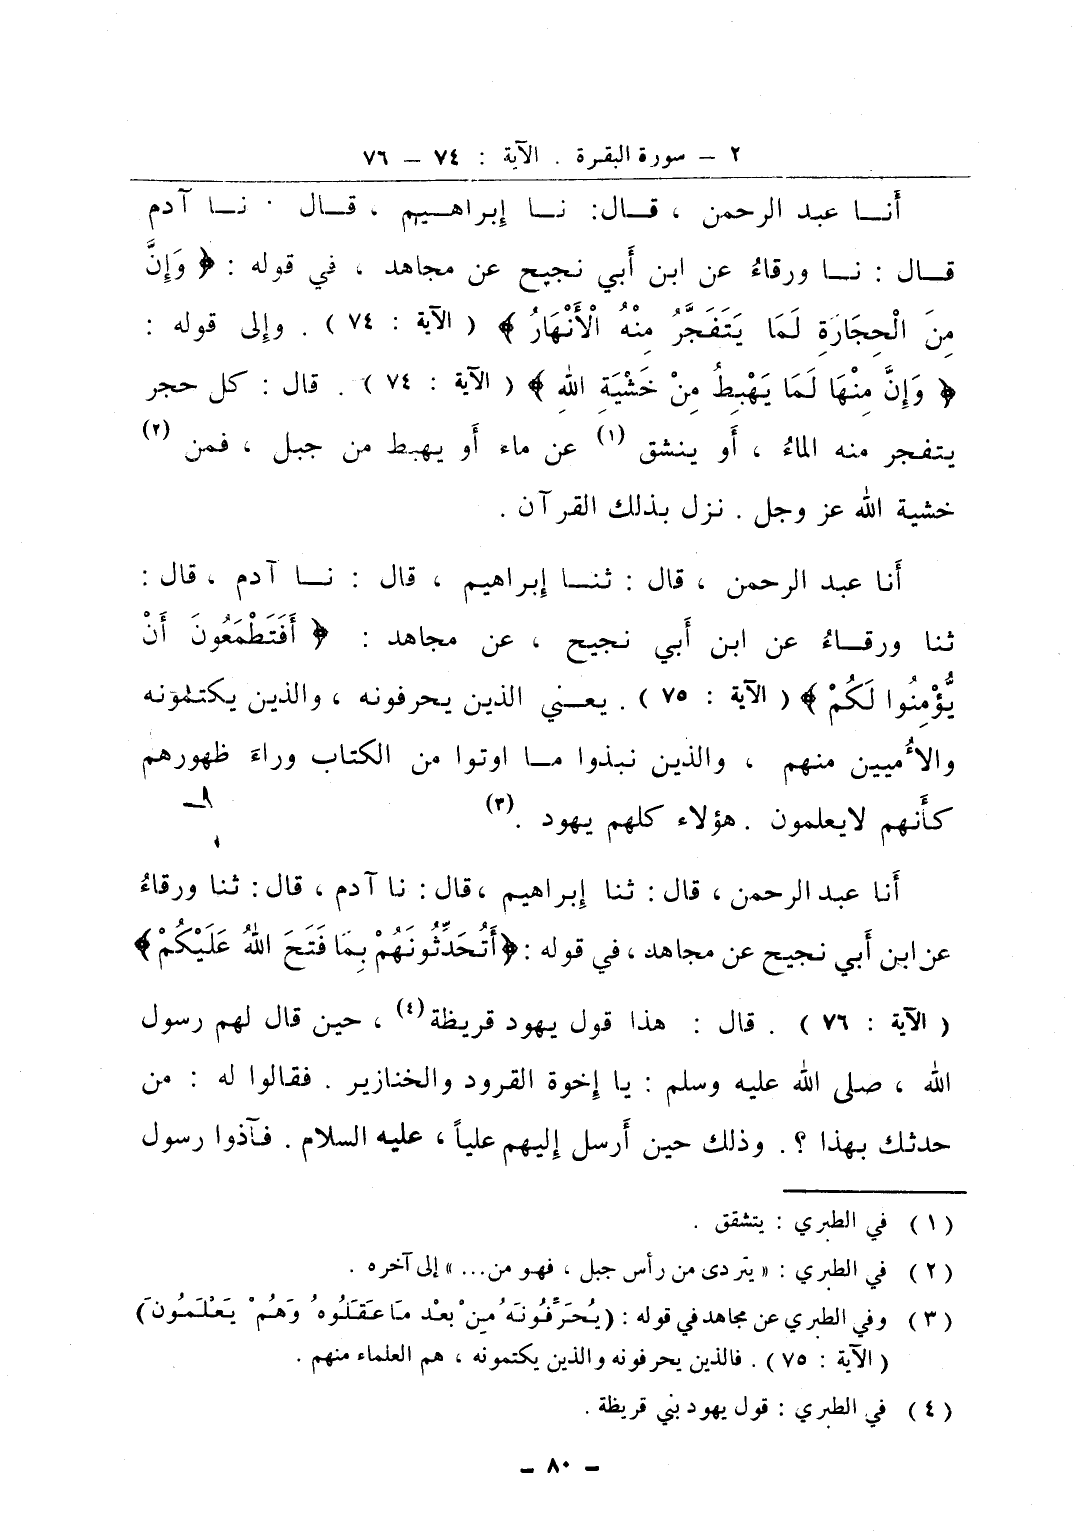 ٢ – سورة البقرة . الآية : ٧٤ – ٧٦
أَنا عبد الرحمن ، قال: نا إبراهيم ، قال . نا آدم
قال : نا ورقاءُ عن ابن أَبي نجيح عن مجاهد ، في قوله : ﴿ وَإِنَّ
مِنَ الْحِجَارَةِ لَمَا يَتَفَجَّرُ مِنْهُ الْأَنْهَارُ ﴾ ( الآية : ٧٤ ) . وإلى قوله :
﴿ وَإِنَّ مِنْهَا لَمَا يَهْبِطُ مِنْ خَشْيَةِ اللهِ ﴾ ( الآية : ٧٤ ) . قال : كل حجر
يتفجر منه الماءُ ، أَو ينشق (١) عن ماء أَو يهبط من جبل ، فمن (٢)
خشية الله عز وجل . نزل بذلك القرآن .
أَنا عبد الرحمن ، قال : ثنا إبراهيم ، قال : نا آدم ، قال :
ثنا ورقاءُ عن ابن أَبي نجيح ، عن مجاهد : ﴿ أَفَتَطْمَعُونَ أَنْ
يُّؤْمِنُوا لَكُمْ ﴾ ( الآية : ٧٥ ) . يعني الذين يحرفونه ، والذين يكتمونه
والأُميين منهم ، والذين نبذوا ما اوتوا من الكتاب وراءَ ظهورهم
كأَنهم لايعلمون . هؤلاء كلهم يهود .(٣)
أَنا عبد الرحمن ، قال : ثنا إبراهيم ،قال : نا آدم ، قال : ثنا ورقاءُ
عن ابن أَبي نجيح عن مجاهد ، في قوله : ﴿أَتُحَدِّثُونَهُمْ بِمَا فَتَحَ اللهُ عَلَيْكُمْ﴾
( الآية : ٧٦ ) . قال : هذا قول يهود قريظة(٤) ، حين قال لهم رسول
الله ، صلى الله عليه وسلم : يا إخوة القرود والخنازير . فقالوا له : من
حدثك بهذا ؟ . وذلك حين أَرسل إليهم علياً ، عليه السلام . فآذوا رسول
(١) في الطبري : يتشقق .
(٢) في الطبري : « يتردى من رأس جبل ، فهو من... » إلى آخره .
(٣) وفي الطبري عن مجاهد في قوله : (يُحَرِّفُونَهُ مِنْ بَعْدِ مَا عَقَلُوهُ وَهُمْ يَعْلَمُونَ)
( الآية : ٧٥ ) . فالذين يحرفونه والذين يكتمونه ، هم العلماء منهم .
(٤) في الطبري : قول يهود بني قريظة .
– ٨٠ –